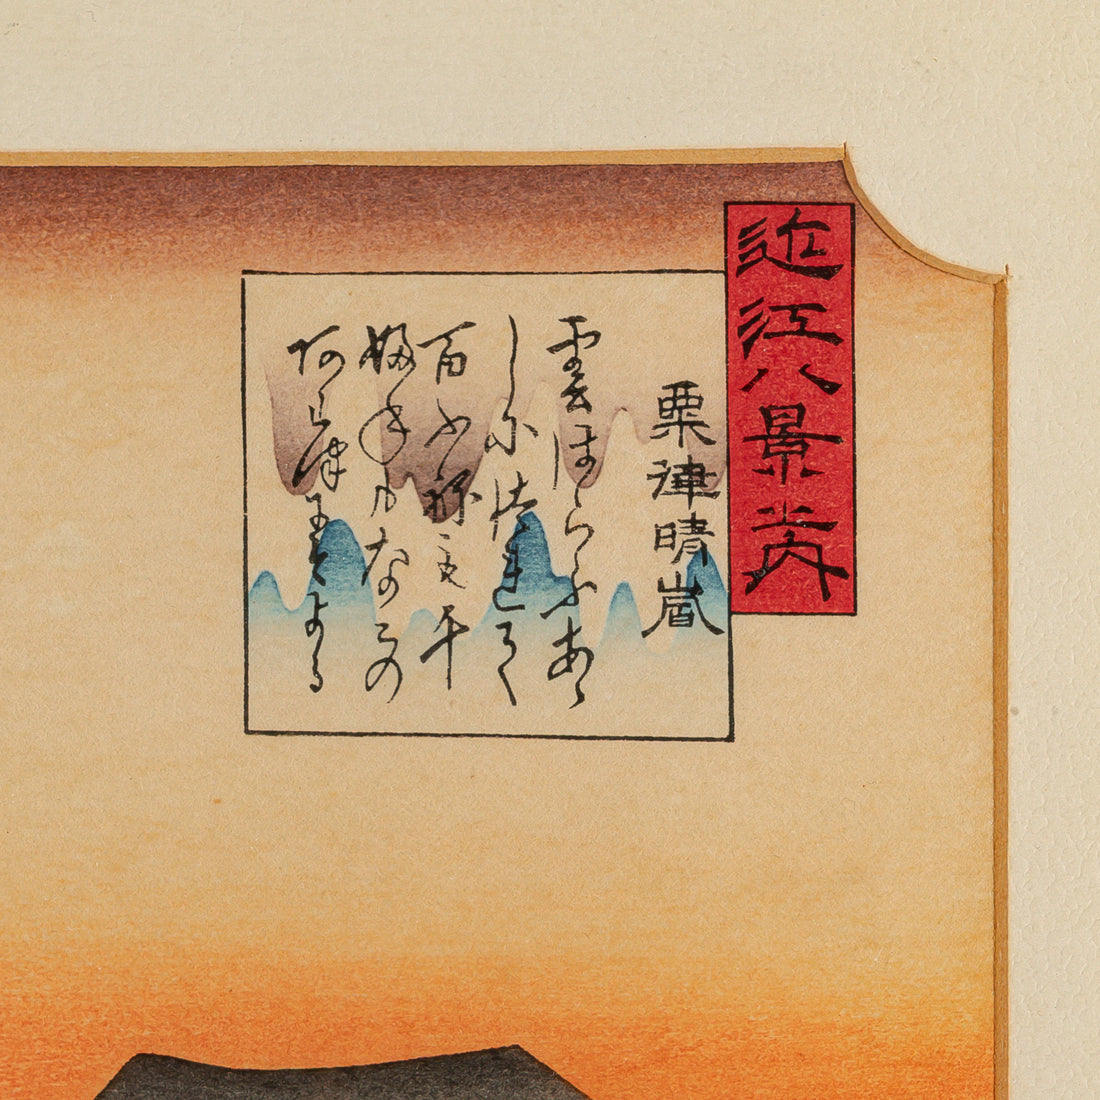 近江八景之内
粟津晴嵐
雲はらふあら
しにつれて
百ふ祢も千
婦ねもなみの
阿は津にそよる